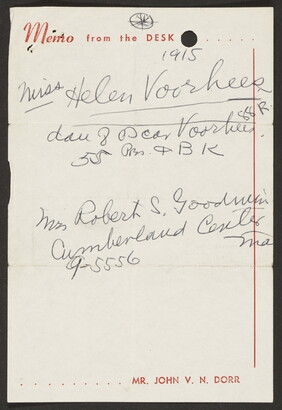 Memo from the DESK
1915
Miss Helen Voorhees
dau of Oscar Voorhees,
55 ΦBK
Mrs Robert S. Goodwin
Cumberland Center
9-5556
MR. JOHN V. N. DORR